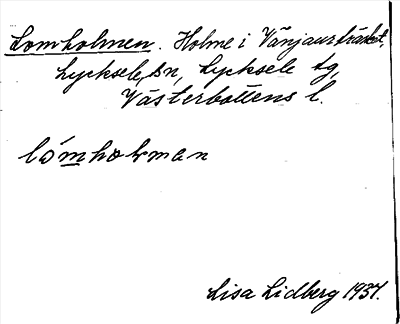 Lomholmen. Holme i Vänjaurträsket,
Lycksele sn, Lycksele tg,
Västerbottens l.
Lisa Lidberg 1937.